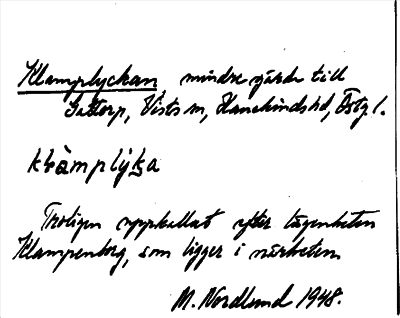 Klamplyckan, mindre gärde till
Sättorp, Vists sn, Hanekinds hd, Östg l.
klàmplỳka
Troligen uppkallat efter lägenheten
Klampenborg, som ligger i närheten
M. Nordlund 1948.